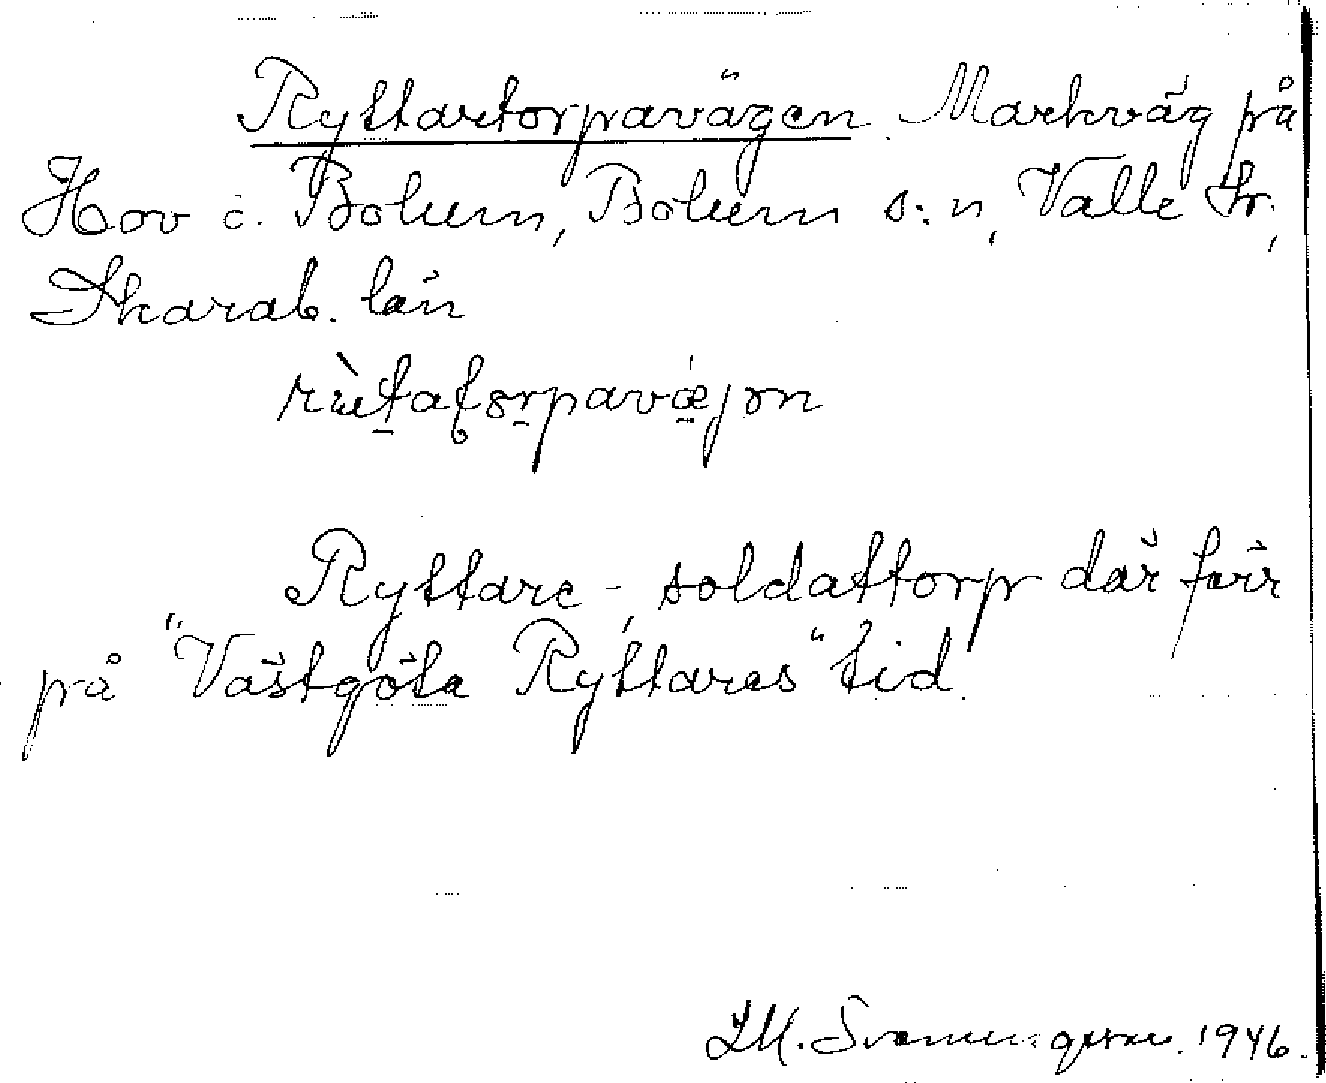 Ryttartorpavägen. Markväg på
Hov i Bolum, Bolum s:n, Valle hr,
Skarab. län
Ryttare-, soldattorp där förr
på "Västgöta Ryttares" tid.
Svenungsson. 1946.